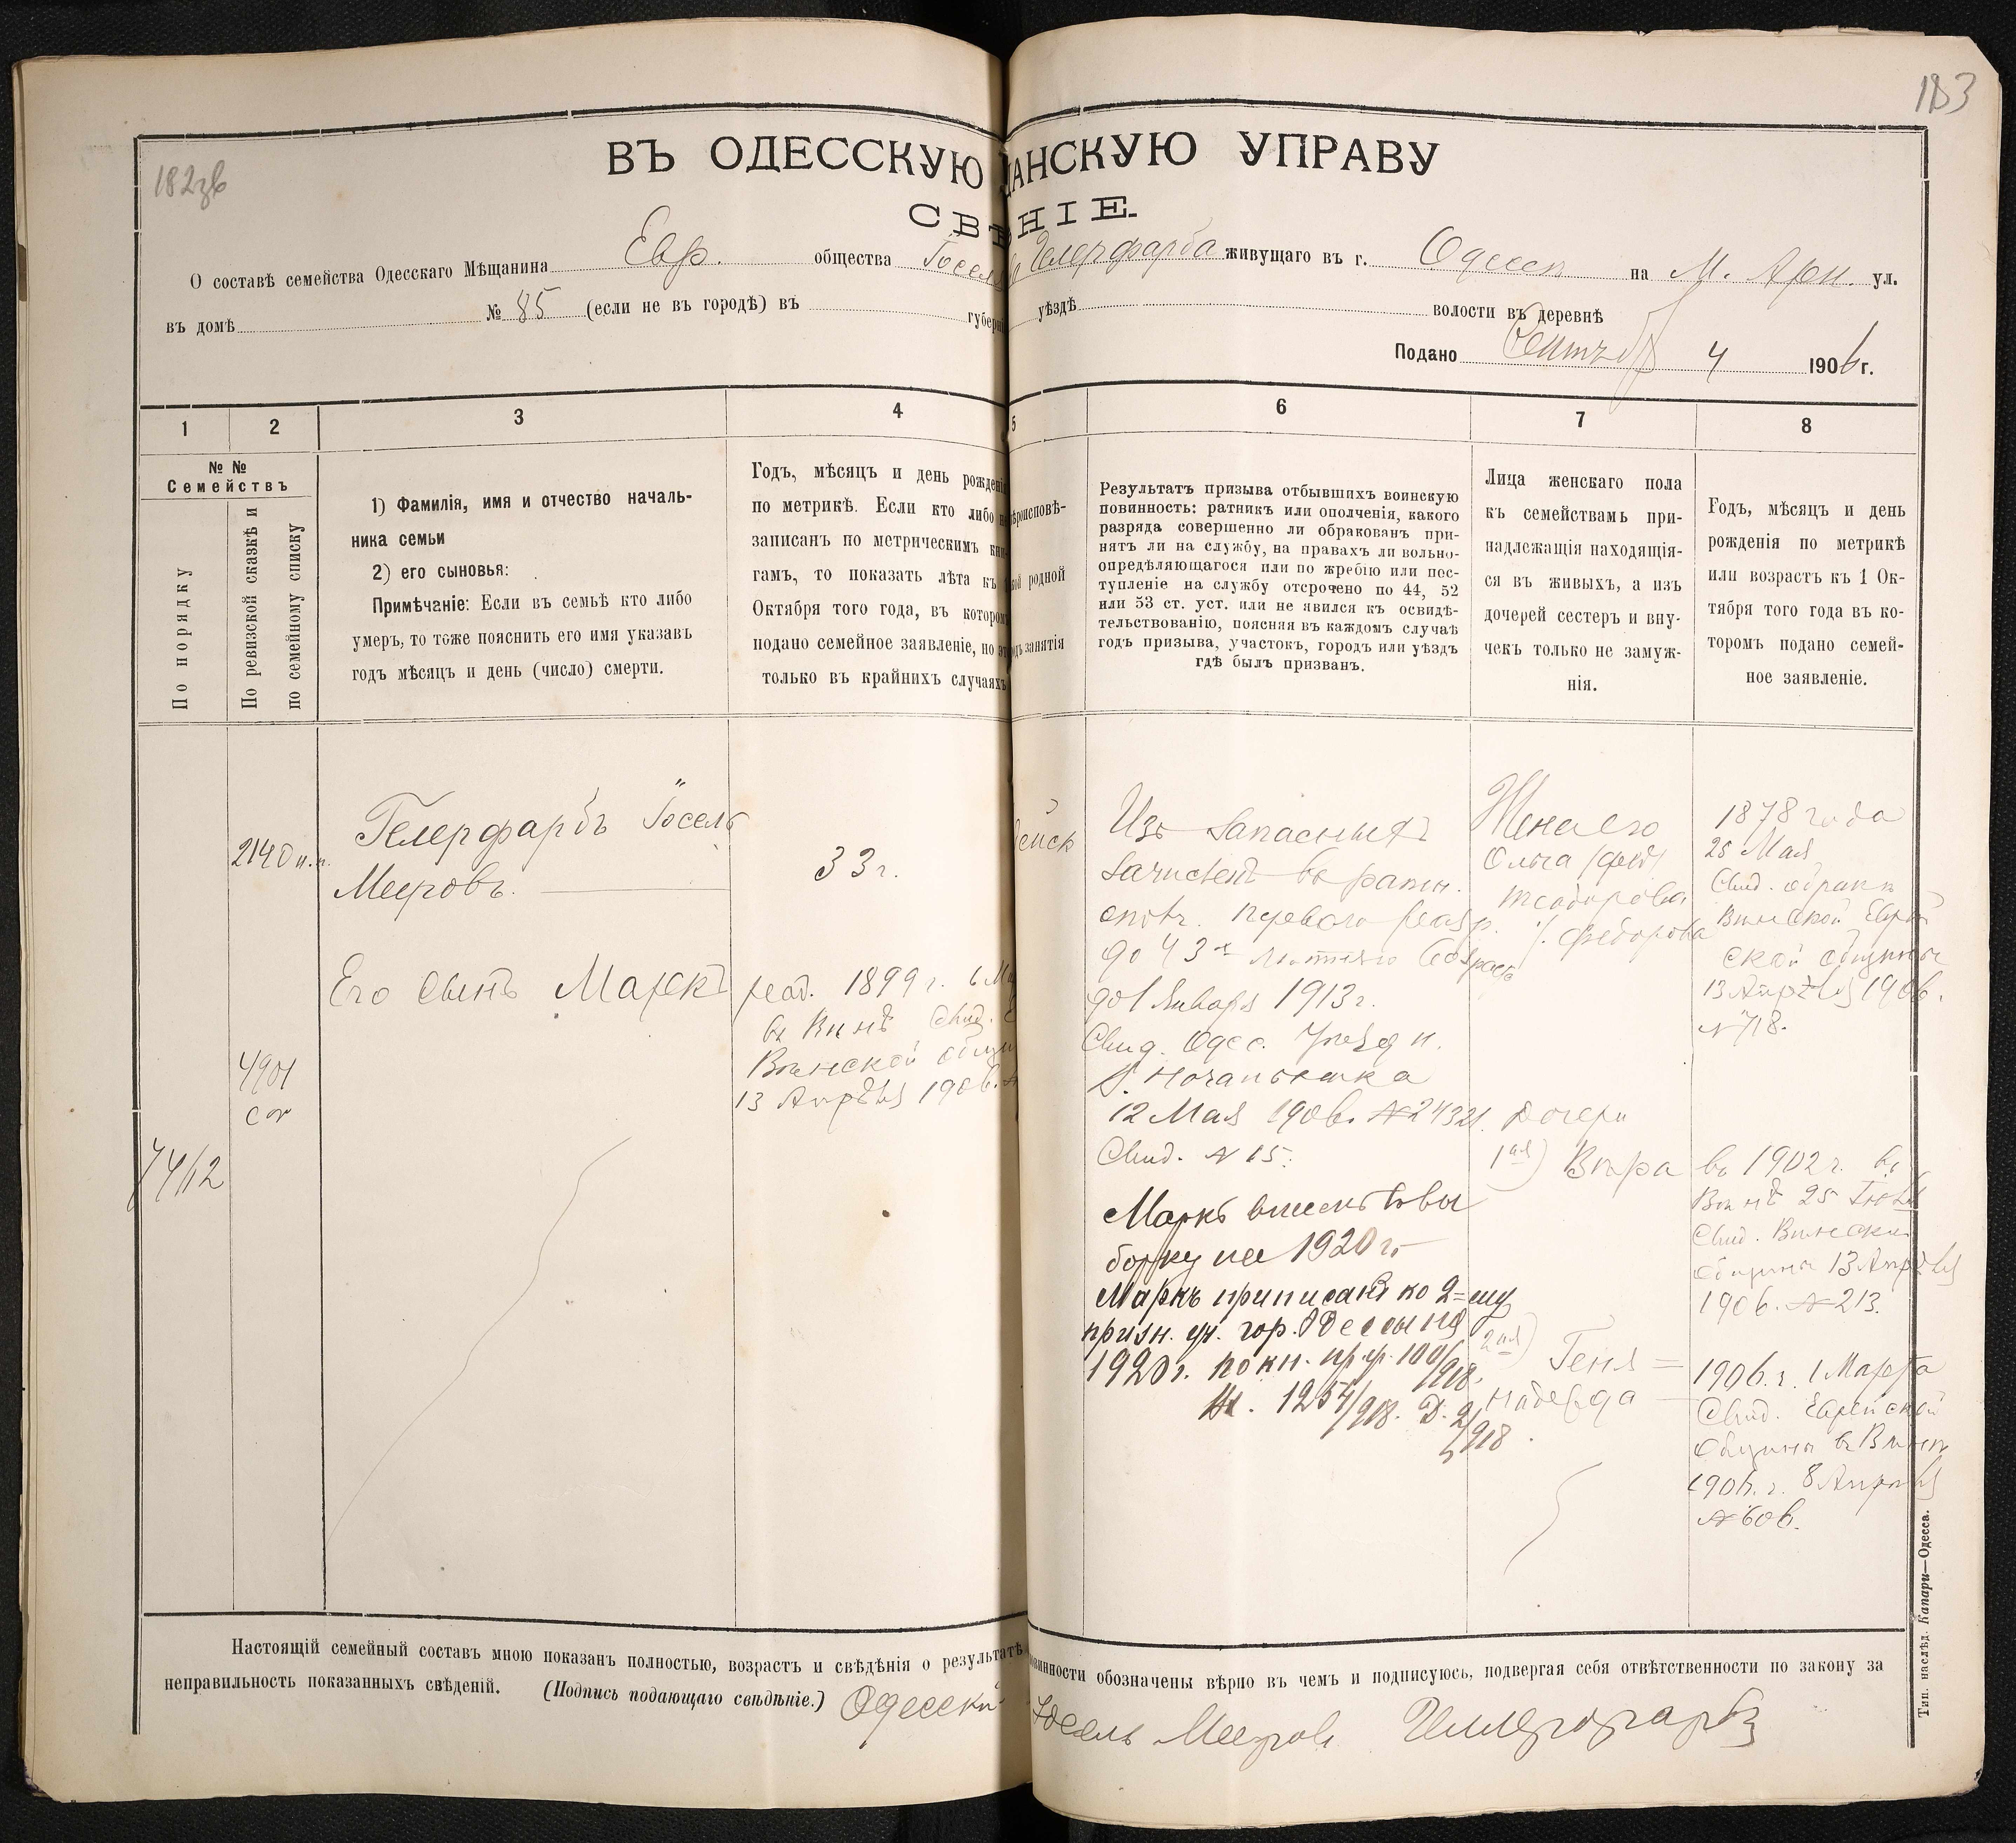 183
182зв
ВЪ ОДЕССКУЮ ЩАНСКУЮ УПРАВУ
СВѢ НІЕ.
О составѣ семейства Одесскаго Мѣщанина Евр. общества Іоселя Гелерфарба живущаго въ г. Одесса на М. Арн. ул.
въ домѣ № 85 (если не въ городѣ) въ губерні уѣздѣ волости въ деревнѣ
Подано Сентяб 4 1906 г.
1 2 3 4 5 6 7 8
№ №
Семействъ
По порядку
По ревизской сказкѣ и
по семейному списку
1) Фамилія, имя и отчество началь-
ника семьи
2) его сыновья:
Примѣчаніе: Если въ семьѣ кто либо
умеръ, то тоже пояснить его имя указавъ
годъ мѣсяцъ и день (число) смерти.
Годъ, мѣсяцъ и день рожденія
по метрикѣ. Если кто либо не
записанъ по метрическимъ кни-
гамъ, то показать лѣта къ 1
Октября того года, въ которомъ
подано семейное заявленіе, но это
только въ крайнихъ случаяхъ
ѣроисповѣ-
кой родной
одъ занятія
Результатъ призыва отбывшихъ воинскую
повинность: ратникъ или ополченія, какого
разряда совершенно ли обракованъ при-
нятъ ли на службу, на правахъ ли вольно-
опредѣляющагося или по жребію или пос-
тупленіе на службу отсрочено по 44, 52
или 53 ст. уст. или не явился къ освидѣ-
тельствованію, поясняя въ каждомъ случаѣ
годъ призыва, участокъ, городъ или уѣздъ
гдѣ былъ призванъ.
Лица женскаго пола
къ семействамъ при-
надлежащія находящія-
ся въ живыхъ, а изъ
дочерей сестеръ и вну-
чекъ только не замуж-
нія.
Годъ, мѣсяцъ и день
рожденія по метрикѣ
или возрастъ къ 1 Ок-
тября того года въ ко-
торомъ подано семей-
ное заявленіе.
2140 н.п.
Гелерфарбъ Іосель
Мееровъ.
33 г.
ейск
Его сынъ Маркъ
род. 1899 г. 6 М
въ Вѣнѣ Свид. Е
Вѣнской общи
13 Апрѣля 1906.
4901
сн
74/12
Изъ запасныхъ
зачисленъ въ ратн.
ополч. перваго разр.
до 43-х лѣтняго возраста
до 1 Января 1913 г.
Свид. Одес. Уѣздн.
В. Начальника
12 Мая 1906. № 24321.
Свид. № 15.
Маркъ внесенъ въ вы
борку на 1920 г.
Маркъ приписанъ ко 2=му
призн. уч. гор. Одессы на
1920 г. по кн. пр. у. 100/918.
Ж. 1254/918. Д. 2/918.
Жена его
Ольга
Теодорова
/. Федорова
1878 года
25 Мая
Свид. обрання
Вѣнской Еврей
ской общины
13 Апрѣля 1906.
№ 718.
Дочери
1ая) Вѣра
въ 1902 г. въ
Вѣнѣ 25 Іюля
Свид. Вѣнской
общины 13 Апрѣля
1906. № 213.
2ая) Геня =
Надежда
1906. г. 1 Марта
Свид. Еврейской
Общины въ Вѣнѣ
1906. г. 8 Апрѣля
№ 606.
Настоящій семейный составъ мною показанъ полностью, возрастъ и свѣдѣнія о результатѣ овинности обозначены вѣрно въ чемъ и подписуюсь, подвергая себя отвѣтственности по закону за
неправильность показанныхъ свѣденій. (Подпись подающаго свѣдѣніе.) Одесскій Іосель Мееровъ Гелерфарбъ
Тип. наслѣд. Капари—Одесса.